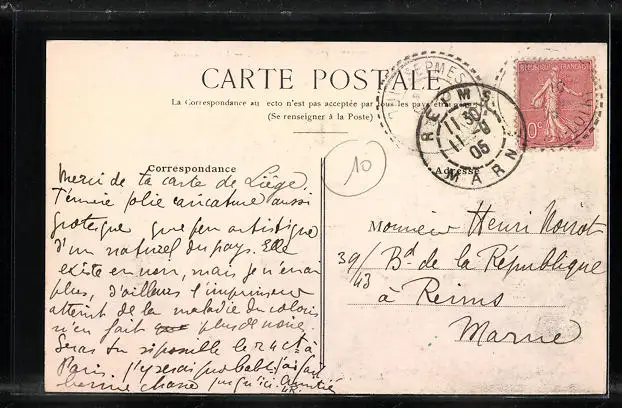 CARTE POSTALE
La Correspondance au recto n'est pas acceptée par tous les pays étrangers
(Se renseigner à la Poste)
RÉPUBLIQUE FRANÇAISE
10c
REIMS
11 30
11 - 8
05
MARNE
10
Correspondance
Adresse
Merci de ta carte de Liège.
T'envoie jolie caricature aussi
grotesque que peu artistique
d'un naturel du pays. Elle
existe en noir, mais je n'en ai
plus, d'ailleurs l'imprimeur
atteint de la maladie du coloris
n'en fait plus de noire.
Seras tu disponible le 24 à
Paris j'y serai probabl.
bonne chasse jusqu'ici. Amitiés
Monsieur Henri Noirot
39/43 Bd de la République
à Reims
Marne